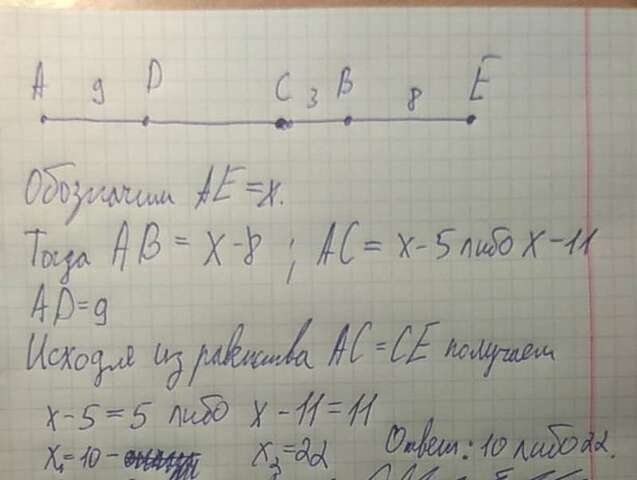 A 9 D C 3 B 8 E
Обозначим AE = x.
Тогда AB = x - 8 ; AC = x - 5 либо x - 11
AD = 9
Исходя из равенства AC = CE получаем
x - 5 = 5 либо x - 11 = 11
x₁ = 10 - x₂ = 22 Ответ: 10 либо 22.